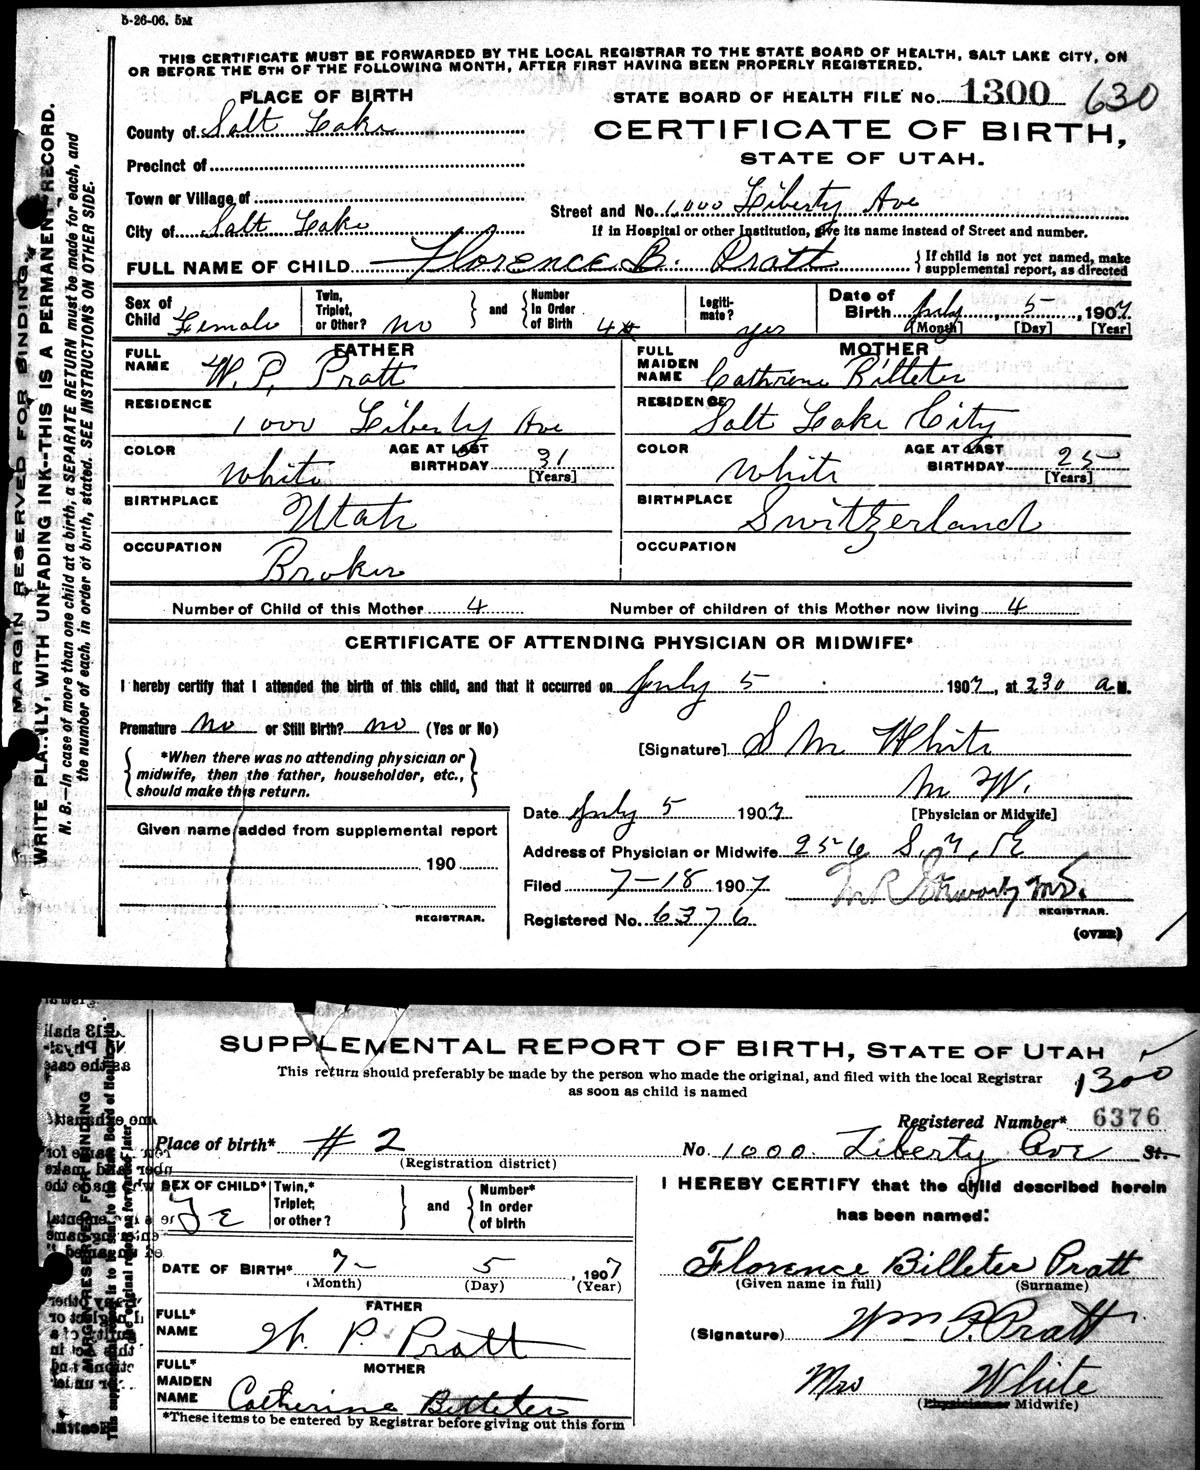 5-26-06. 5M
THIS CERTIFICATE MUST BE FORWARDED BY THE LOCAL REGISTRAR TO THE STATE BOARD OF HEALTH, SALT LAKE CITY, ON
OR BEFORE THE 5TH OF THE FOLLOWING MONTH, AFTER FIRST HAVING BEEN PROPERLY REGISTERED.
MARGIN RESERVED FOR BINDING.
WRITE PLAINLY, WITH UNFADING INK--THIS IS A PERMANENT RECORD.
N. B.—In case of more than one child at a birth, a SEPARATE RETURN must be made for each, and
the number of each, in order of birth, stated. SEE INSTRUCTIONS ON OTHER SIDE.
PLACE OF BIRTH
STATE BOARD OF HEALTH FILE No. 1300 630
County of Salt Lake
CERTIFICATE OF BIRTH,
STATE OF UTAH.
Precinct of
Town or Village of
Street and No. 1000 Liberty Ave
City of Salt Lake
If in Hospital or other Institution, give its name instead of Street and number.
FULL NAME OF CHILD Florence B. Pratt
{ If child is not yet named, make
supplemental report, as directed
Sex of Child Female
Twin, Triplet, or Other? no
and
Number In Order of Birth 4
Legiti- mate? yes
Date of Birth July 5, 1907
[Month] [Day] [Year]
FATHER
FULL NAME W. P. Pratt
MOTHER
FULL MAIDEN NAME Cathrene Billeter
RESIDENCE 1000 Liberty Ave
RESIDENCE Salt Lake City
COLOR White
AGE AT LAST BIRTHDAY 31 [Years]
COLOR White
AGE AT LAST BIRTHDAY 25 [Years]
BIRTHPLACE Utah
BIRTHPLACE Switzerland
OCCUPATION Broker
OCCUPATION
Number of Child of this Mother 4
Number of children of this Mother now living 4
CERTIFICATE OF ATTENDING PHYSICIAN OR MIDWIFE*
I hereby certify that I attended the birth of this child, and that it occurred on July 5 1907, at 230 a M.
Premature no or Still Birth? no (Yes or No)
*When there was no attending physician or
midwife, then the father, householder, etc.,
should make this return.
[Signature] S M White
M W.
[Physician or Midwife]
Given name added from supplemental report
190
REGISTRAR.
Date July 5 1907
Address of Physician or Midwife 256 S. 7, E
Filed 7-18 1907
M.D.
REGISTRAR.
Registered No. 6376
(OVER)
SUPPLEMENTAL REPORT OF BIRTH, STATE OF UTAH
This return should preferably be made by the person who made the original, and filed with the local Registrar
as soon as child is named
1300
MARGIN RESERVED FOR BINDING
Registered Number* 6376
Place of birth* #2
(Registration district)
No. 1000 Liberty Ave St.
SEX OF CHILD*
FE
Twin,* Triplet, or other?
and
Number* In order of birth
I HEREBY CERTIFY that the child described herein
has been named:
DATE OF BIRTH* 7- 5, 1907
(Month) (Day) (Year)
Florence Billeter Pratt
(Given name in full) (Surname)
FATHER
FULL* NAME W. P. Pratt
(Signature) Wm P. Pratt
MOTHER
FULL* MAIDEN NAME Catherine Billeter
Mrs White
(Physician or Midwife)
*These items to be entered by Registrar before giving out this form